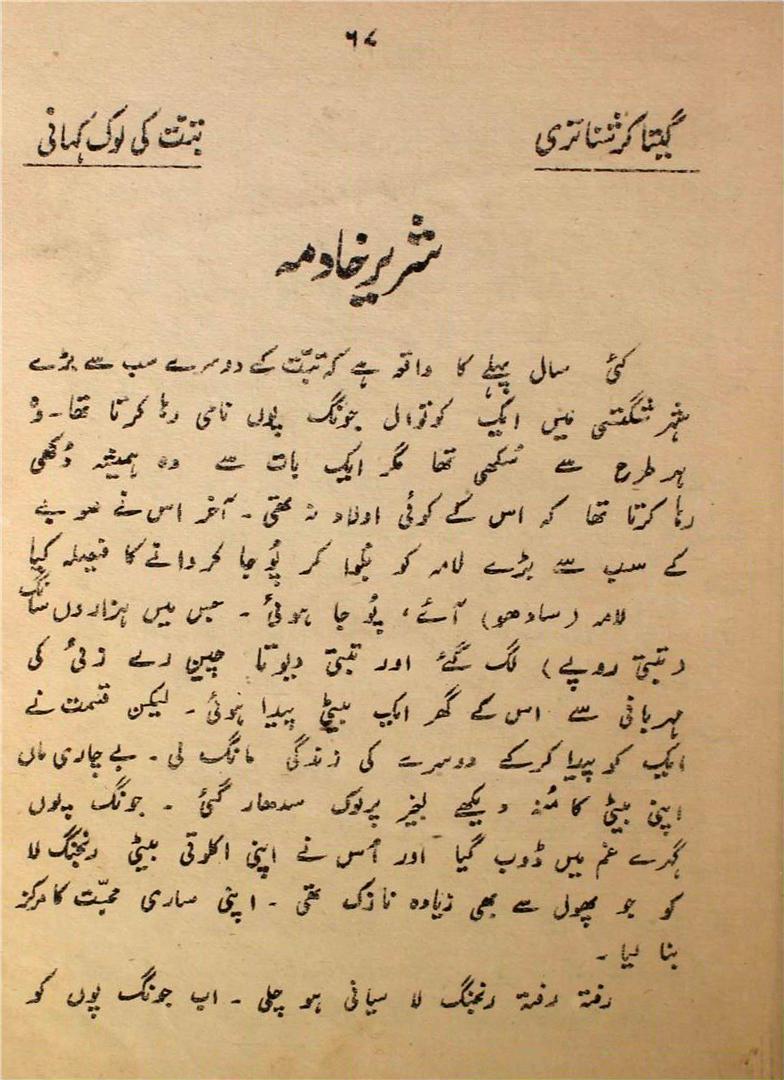 ٦٧
گیتا کرشناتری
تبت کی لوک کہانی
شریر خادمہ
کئی سال پہلے کا واقعہ ہے کہ تبت کے دوسرے سب سے بڑے
شہر شگتسی میں ایک کوتوال جونگ پوں نامی رہا کرتا تھا۔ وہ
ہر طرح سے سُکھی تھا مگر ایک بات سے وہ ہمیشہ دُکھی
رہا کرتا تھا کہ اس کے کوئی اولاد نہ تھی۔ آخر اس نے صوبے
کے سب سے بڑے لامہ کو بُلوا کر پُوجا کروانے کا فیصلہ کیا
لامہ (سادھو) آئے، پُوجا ہوئی۔ جس میں ہزاروں سانگ
(تبتی روپے) لگ گئے اور تبتی دیوتا چین رے زئی کی
مہربانی سے اس کے گھر ایک بیٹی پیدا ہوئی۔ لیکن قسمت نے
ایک کو پیدا کرکے دوسرے کی زندگی مانگ لی۔ بے چاری ماں
اپنی بیٹی کا مُنہ دیکھے بغیر پرلوک سدھار گئی۔ جونگ پوں
گہرے غم میں ڈوب گیا اور اُس نے اپنی اکلوتی بیٹی رنجنگ لا
کو جو پھول سے بھی زیادہ نازک تھی۔ اپنی ساری محبّت کا مرکز
بنا لیا۔
رفتہ رفتہ رنجنگ لا سیانی ہو چلی۔ اب جونگ پوں کو